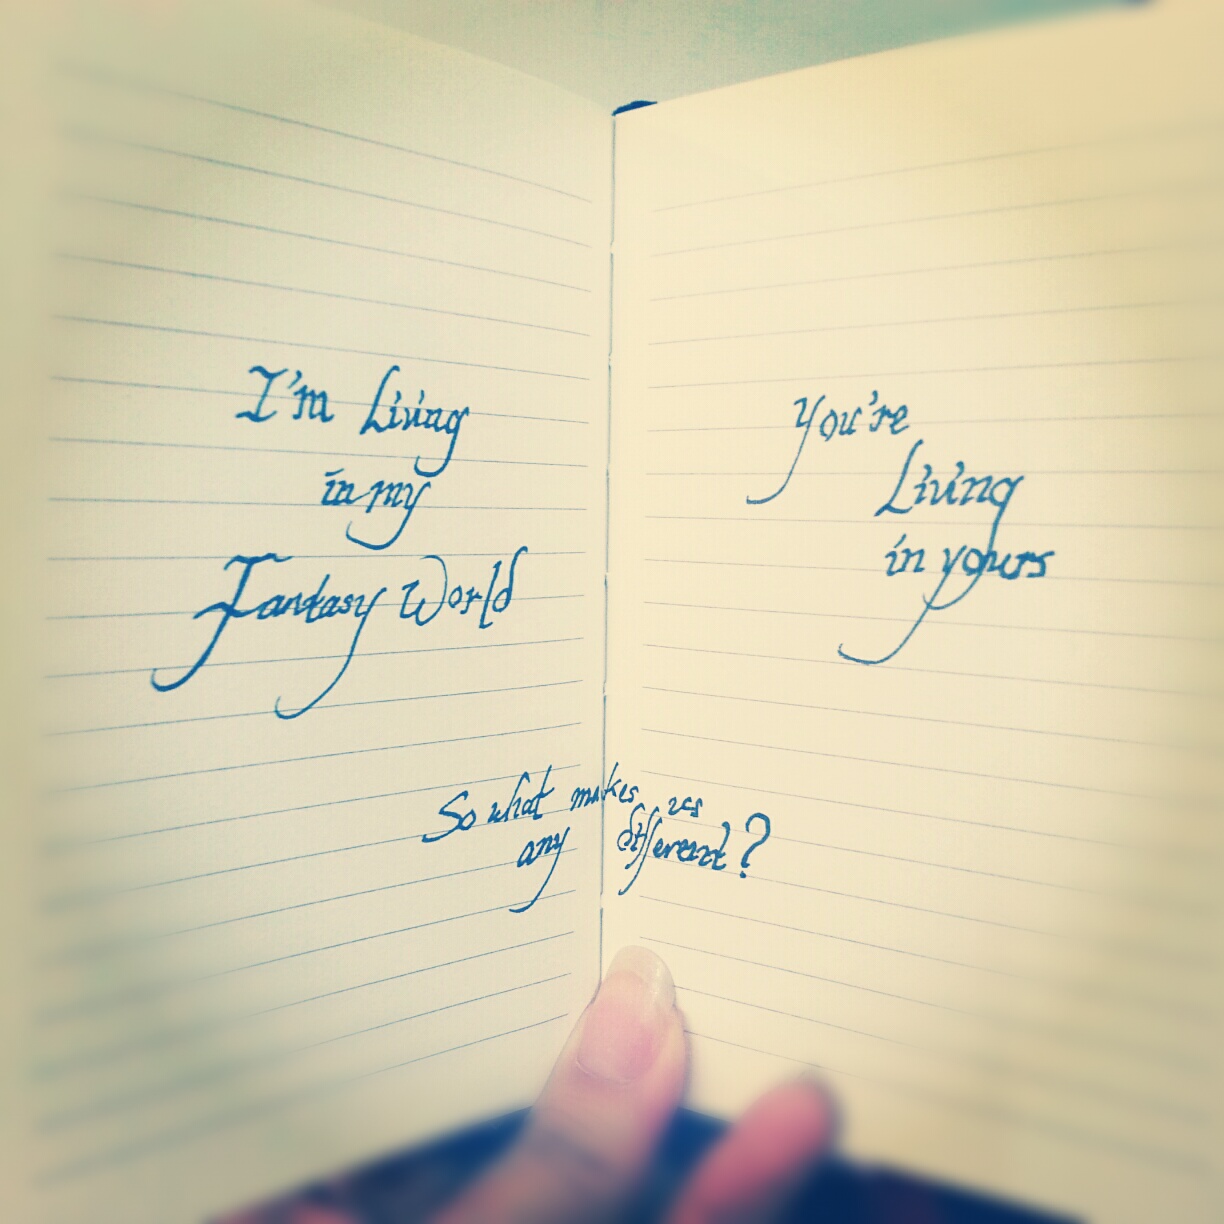 I'm Living
in my
Fantasy World
You're
Living
in yours
So what makes us
any different?